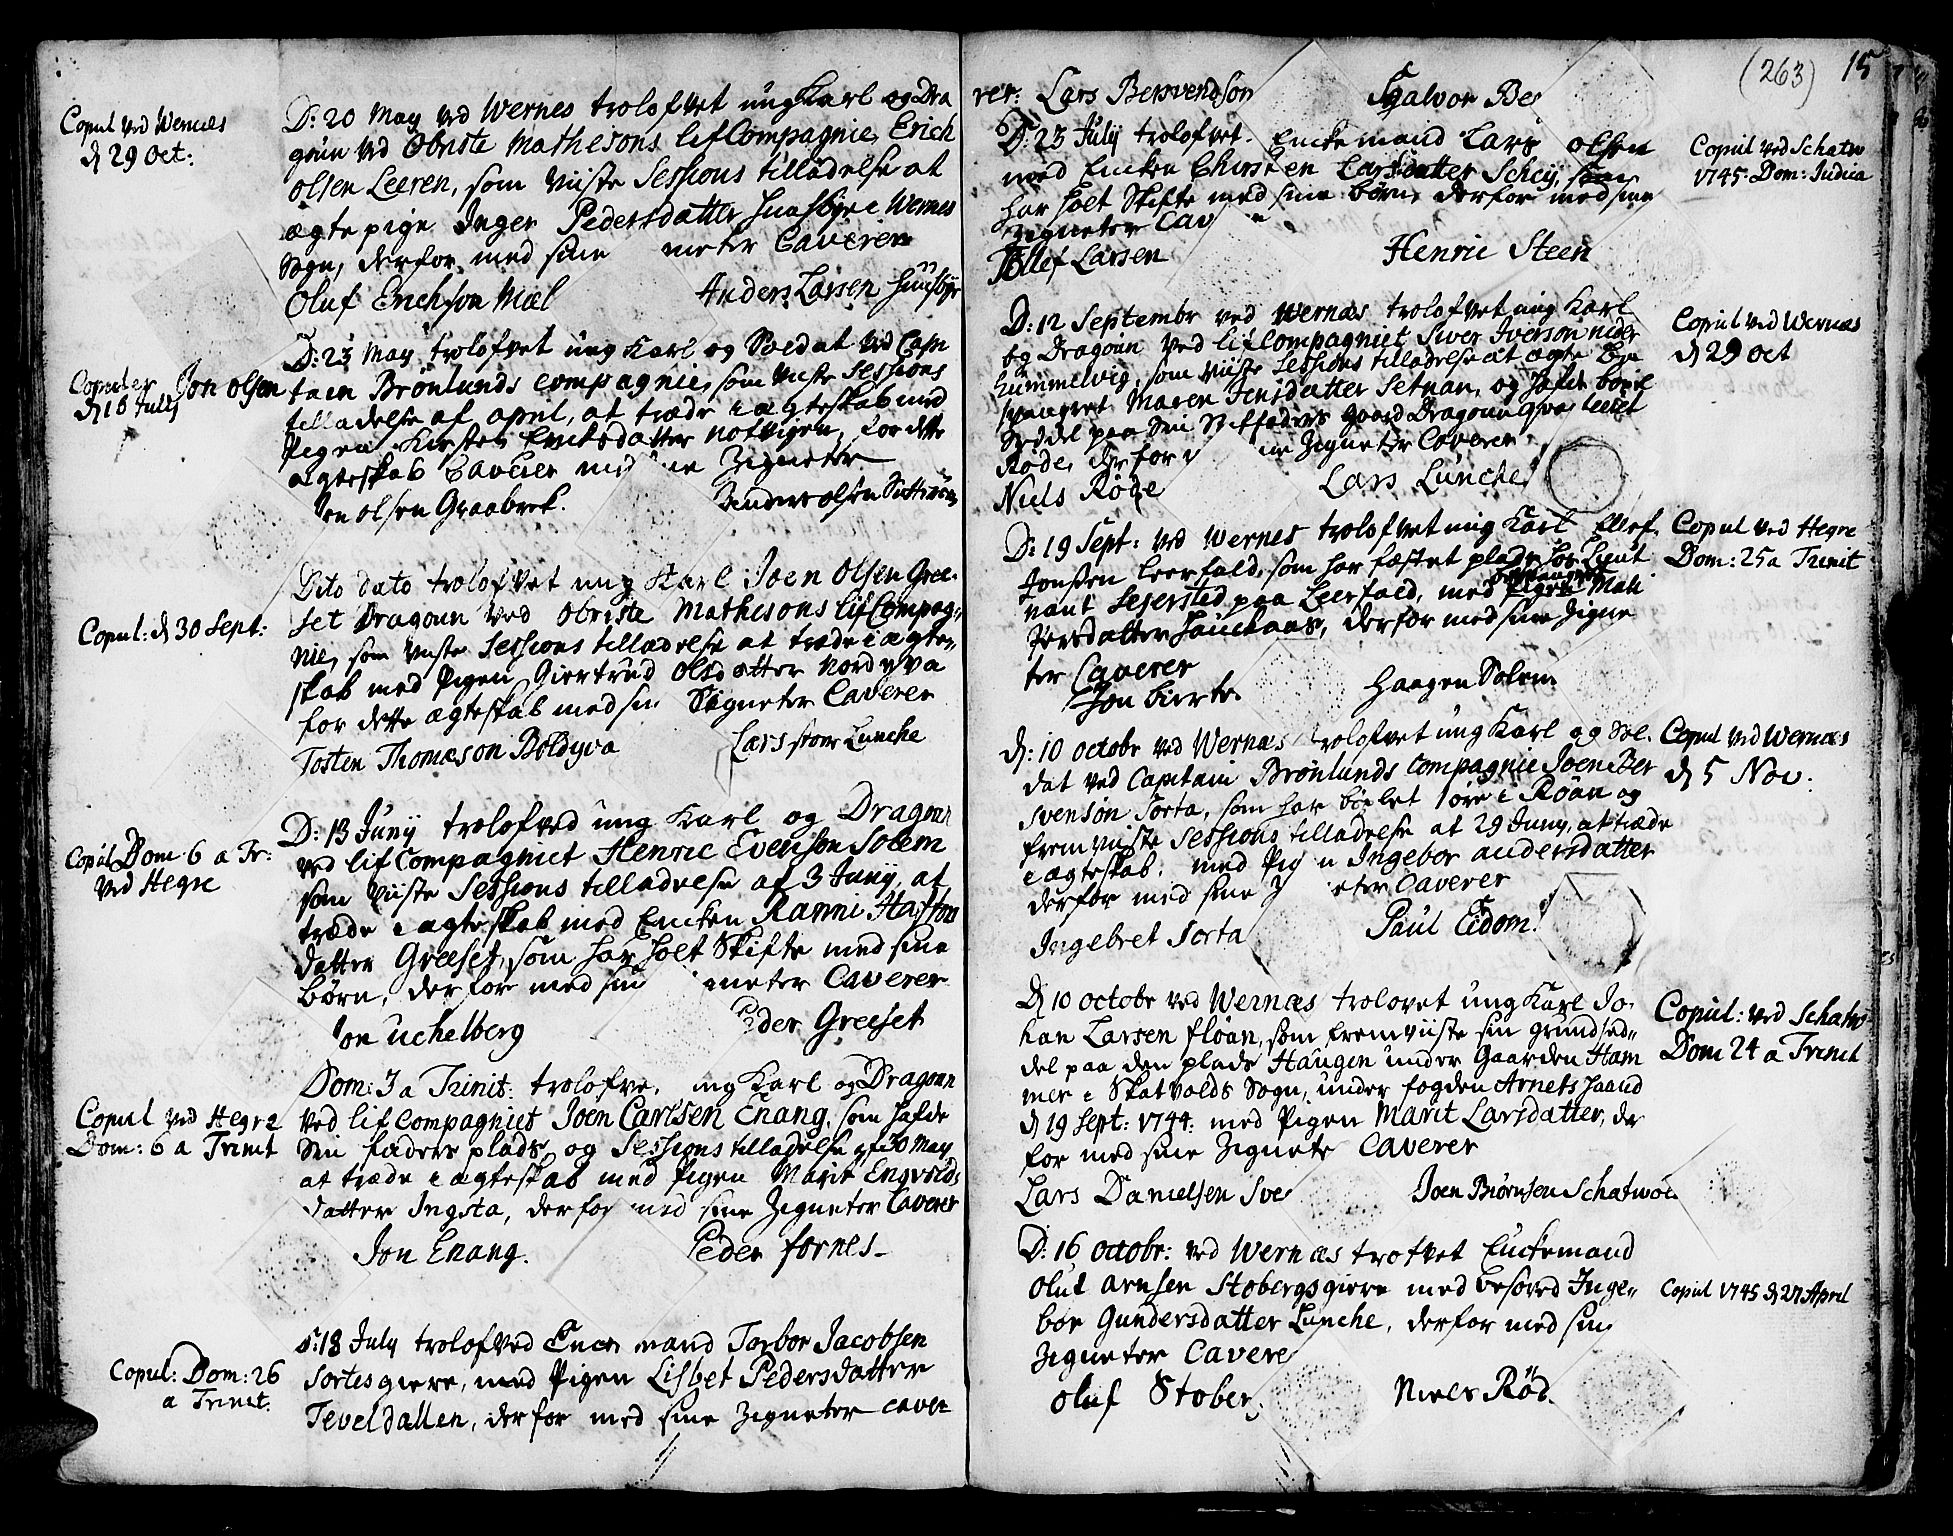 Copul ved Wernæs
d 29 Oct:
D: 20 May ved Wernes trolofvet ung Karl og Dra
goun ved Obriste Mathesons lif Compagnie, Erich
Olsen Leeren, som viiste Sessions tilladelse at
ægte pige Inger Pedersdatter Huusbye i Wernes
Sogn, derfor med sine neter Caverer
Oluf Erichson Mæl
Anders Larsen Huusbye
Copuler
d 16 July
Jon Olsen
D: 23 May trolofvet ung Karl og Soldat ved Capi
tain Brønlunds Compagnie, som viiste Sessions
tilladelse af april, at træde i ægteskab med
Pigen Kirsten Ericksdatter Notvigen, for dette
ægteskab Caverer med sine Zigneter
Jon Olsen Graabrek.
Anders Olsen
Copul: d 30 Sept:
Dito dato trolofvet ung Karl Joen Olsen Gree-
set Dragoun ved Obriste Mathesons lif Compag-
nie, som viiste Sessions tilladelse at træde i ægte-
skab med Pigen Giertrud Olsdatter Nordyva
for dette ægteskab med sin Signeter Caverer
Tosten Thomæson Boldyva
Lars store Lunche
Copul Dom 6 a Tr:
ved Hegre
D: 13 Juny trolofved ung Karl og Dragoun
ved lif Compagniet Henric Evensson Solem
som viiste Sessions tilladelse af 3 Juny, at
træde i ægteskab med Encken Ranni Haffton
datter Greeset, som har holt Skifte med sine
børn, derfor med sin neter Caverer
Jon uchelberg
Peder Greeset
Copul ved Hegre
Dom: 6 a Trinit
Dom: 3 a Trinit: trolofve. ung Karl og Dragoun
ved lif Compagniet Joen Carlsen Enang, som hafde
sin faders plads, og Sessions tilladelse af 30 May,
at træde i ægteskab med Pigen Marit Engvolds
datter Ingsta, derfor med sine Zigneter Caverer
Jon Enang.
Peder fornes-
Copul: Dom: 26
a Trinit.
D: 18 July trolofved Enckemand Torbor Jacobsen
Sortesgiere, med Pigen Lisbet Pedersdatter
Teveldallen, derfor med sine Zigneter cave-
(263) 15
rer: Lars Bersvendson
Halvor Be
D: 23 July trolofvet. Enckemand Lars Olsen
med Encken Chirsten Larsdatter Schey, som
har holt Skifte med sine børn, derfor med sine
Zigneter Cav
Tollef Larsen
Henric Steen
Copul ved Schatv
1745: Dom: Judica
D: 12 Septembr ved Wernæs trolofvet ung Karl
og Dragoun ved lif Compagniet Siver Iverson neder
Hummelvig, som viiste Sessions tilladelse at ægte be
svangret Maren Jensdatter Setnan, og hafde boxel
Seddel paa sin Stiffaders gaard Dragoun qvarteret
Røde, derfor sine Zigneter Caverer
Niels Røde
Lars Lunche
Copul ved Wernæs
d 29 Oct
D: 19 Sept: ved Wernes trolofvet ung Karl Ellef
Jonssen Leerfald, som har fæstet plads hos Lieut
nant Sejersted paa Leerfald, med Pigen Mali
Persdatter Hauchaas, derfor med sine Zigne
ter Caverer
Jon Bierte
Haagen Solem
Copul ved Hegre
Dom: 25 a Trinit
D: 10 octobr ved Wernæs trolofvet ung Karl og Sol-
dat ved Capitain Brønlunds Compagnie Joen Ber
svenson Sorta, som har bøxlet 1 øre i Røan og
fremviiste Sessions tilladelse at 29 Juny, at træde
i ægteskab. med Pigen Ingebor andersdatter
derfor med sine Zigneter Caverer
Ingebret Sorta
Paul Eidom
Copul ved Wernæs
d 5 Nov:
D 10 octobr ved Wernæs trolovet ung Karl Jo-
han Larsen fløan, som fremviiste sin grundsed-
del paa den plads Haugen under Gaarden Ham
mer i Skatvolds Sogn, under fogden Arnets haand
d 19 Sept: 1744. med Pigen Marit Larsdatter, der
for med sine Zignete Caverer
Lars Danielsen Sve
Joen Biørnsen Schatwol
Copul: ved Schatv
Dom 24 a Trinit
D: 16 octobr: ved Wernæs trofvet Enckemand
Oluf Arnsen Stobergsgiere med besøved Inge-
bor Gundersdatter Lunche, derfor med sin
Zigneter Cavere
Oluf Stober
Niels Rød.
Copul 1745 d 27 April